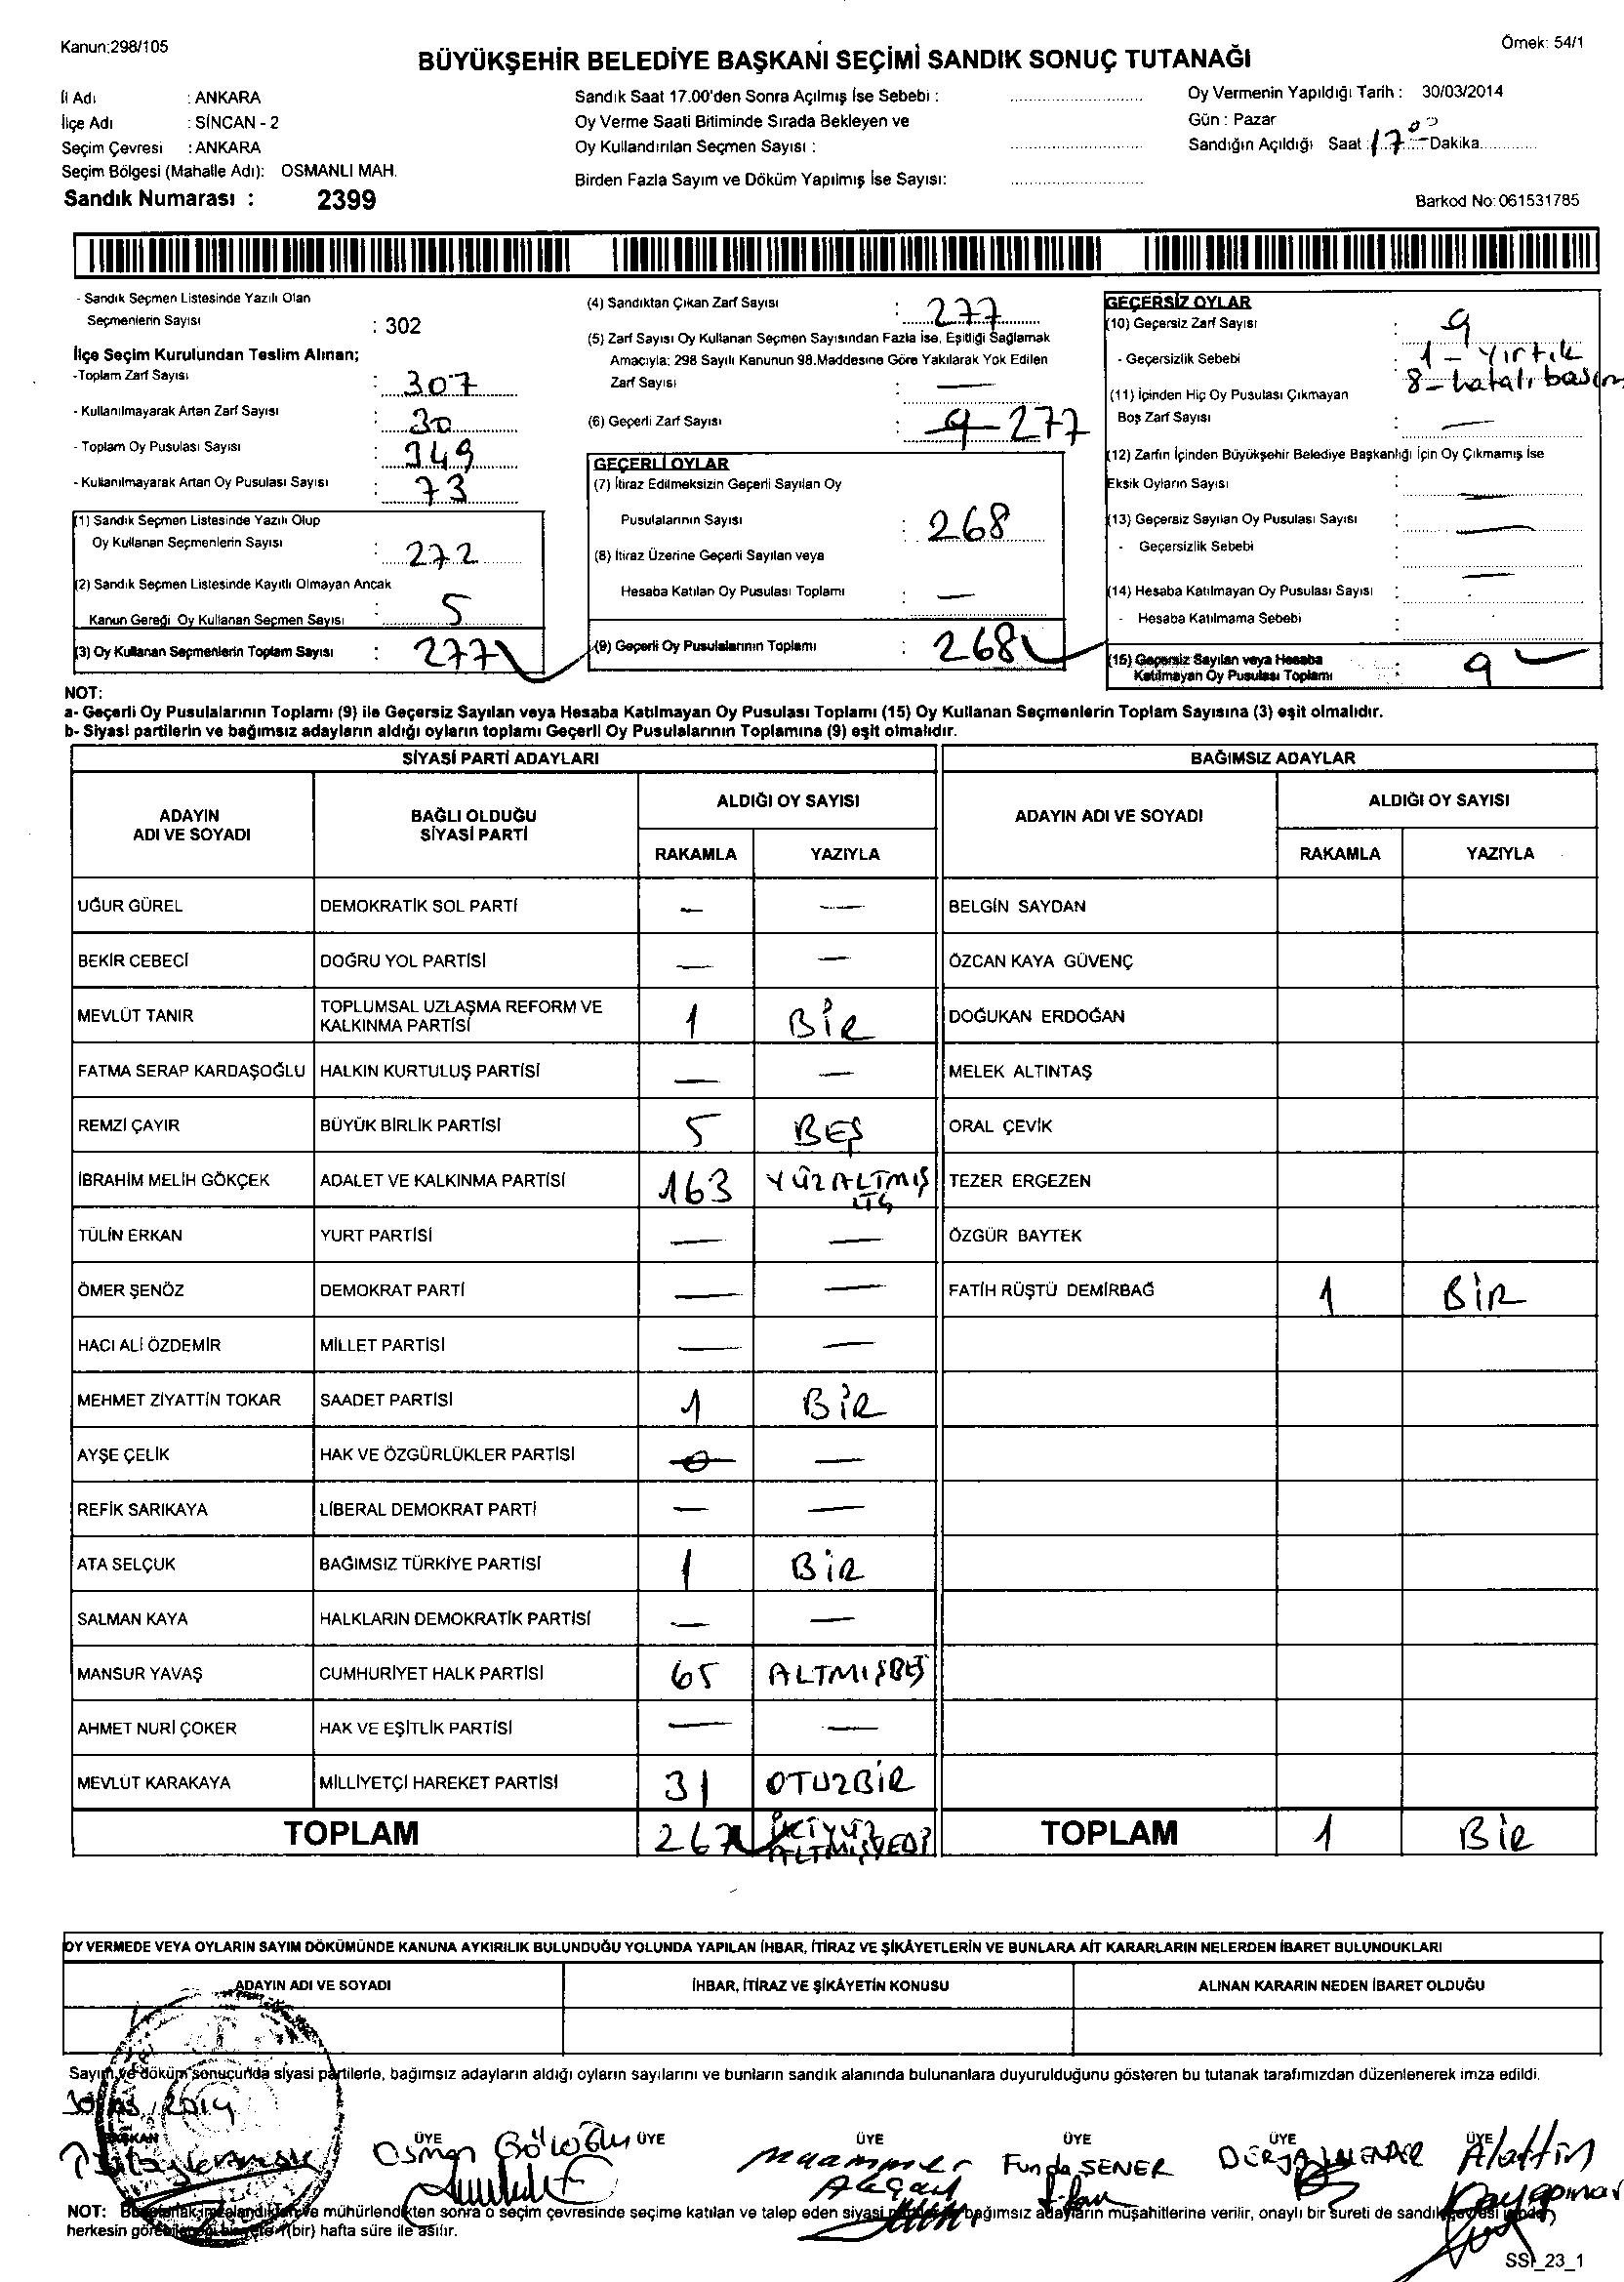 Kanun:298/105
Örnek: 54/1
BÜYÜKŞEHİR BELEDİYE BAŞKANI SEÇİMİ SANDIK SONUÇ TUTANAĞI
İl Adı : ANKARA
İlçe Adı : SİNCAN - 2
Seçim Çevresi : ANKARA
Seçim Bölgesi (Mahalle Adı): OSMANLI MAH.
Sandık Numarası : 2399
Sandık Saat 17.00'den Sonra Açılmış İse Sebebi :
Oy Verme Saati Bitiminde Sırada Bekleyen ve
Oy Kullandırılan Seçmen Sayısı :
Birden Fazla Sayım ve Döküm Yapılmış İse Sayısı:
Oy Vermenin Yapıldığı Tarih : 30/03/2014
Gün : Pazar
Sandığın Açıldığı Saat : 17 00 Dakika
Barkod No: 061531785
- Sandık Seçmen Listesinde Yazılı Olan
Seçmenlerin Sayısı : 302
İlçe Seçim Kurulundan Teslim Alınan;
-Toplam Zarf Sayısı : 307
- Kullanılmayarak Artan Zarf Sayısı : 30
- Toplam Oy Pusulası Sayısı : 349
- Kullanılmayarak Artan Oy Pusulası Sayısı : 73
(1) Sandık Seçmen Listesinde Yazılı Olup
Oy Kullanan Seçmenlerin Sayısı : 272
(2) Sandık Seçmen Listesinde Kayıtlı Olmayan Ancak
Kanun Gereği Oy Kullanan Seçmen Sayısı : 5
(3) Oy Kullanan Seçmenlerin Toplam Sayısı : 277
(4) Sandıktan Çıkan Zarf Sayısı : 277
(5) Zarf Sayısı Oy Kullanan Seçmen Sayısından Fazla İse, Eşitliği Sağlamak
Amacıyla: 298 Sayılı Kanunun 98.Maddesine Göre Yakılarak Yok Edilen
Zarf Sayısı : —
(6) Geçerli Zarf Sayısı : 9 277
GEÇERLİ OYLAR
(7) İtiraz Edilmeksizin Geçerli Sayılan Oy
Pusulalarının Sayısı : 268
(8) İtiraz Üzerine Geçerli Sayılan veya
Hesaba Katılan Oy Pusulası Toplamı : —
(9) Geçerli Oy Pusulalarının Toplamı : 268
GEÇERSİZ OYLAR
(10) Geçersiz Zarf Sayısı : 9
- Geçersizlik Sebebi : 1 - Yırtık
8 - hatalı basım
(11) İçinden Hiç Oy Pusulası Çıkmayan
Boş Zarf Sayısı : —
(12) Zarfın İçinden Büyükşehir Belediye Başkanlığı İçin Oy Çıkmamış İse
Eksik Oyların Sayısı : —
(13) Geçersiz Sayılan Oy Pusulası Sayısı : —
- Geçersizlik Sebebi :
(14) Hesaba Katılmayan Oy Pusulası Sayısı : —
- Hesaba Katılmama Sebebi :
(15) Geçersiz Sayılan veya Hesaba
Katılmayan Oy Pusulası Toplamı : 9
NOT:
a- Geçerli Oy Pusulalarının Toplamı (9) ile Geçersiz Sayılan veya Hesaba Katılmayan Oy Pusulası Toplamı (15) Oy Kullanan Seçmenlerin Toplam Sayısına (3) eşit olmalıdır.
b- Siyasi partilerin ve bağımsız adayların aldığı oyların toplamı Geçerli Oy Pusulalarının Toplamına (9) eşit olmalıdır.
SİYASİ PARTİ ADAYLARI BAĞIMSIZ ADAYLAR
ADAYIN ADI VE SOYADI BAĞLI OLDUĞU SİYASİ PARTİ ALDIĞI OY SAYISI ADAYIN ADI VE SOYADI ALDIĞI OY SAYISI
RAKAMLA YAZIYLA RAKAMLA YAZIYLA
UĞUR GÜREL DEMOKRATİK SOL PARTİ — — BELGİN SAYDAN
BEKİR CEBECİ DOĞRU YOL PARTİSİ — — ÖZCAN KAYA GÜVENÇ
MEVLÜT TANIR TOPLUMSAL UZLAŞMA REFORM VE KALKINMA PARTİSİ 1 BİR DOĞUKAN ERDOĞAN
FATMA SERAP KARDAŞOĞLU HALKIN KURTULUŞ PARTİSİ — — MELEK ALTINTAŞ
REMZİ ÇAYIR BÜYÜK BİRLİK PARTİSİ 5 BEŞ ORAL ÇEVİK
İBRAHİM MELİH GÖKÇEK ADALET VE KALKINMA PARTİSİ 163 YÜZALTMIŞ ÜÇ TEZER ERGEZEN
TÜLİN ERKAN YURT PARTİSİ — — ÖZGÜR BAYTEK
ÖMER ŞENÖZ DEMOKRAT PARTİ — — FATİH RÜŞTÜ DEMİRBAĞ 1 BİR
HACI ALİ ÖZDEMİR MİLLET PARTİSİ — —
MEHMET ZİYATTİN TOKAR SAADET PARTİSİ 1 BİR
AYŞE ÇELİK HAK VE ÖZGÜRLÜKLER PARTİSİ 0 —
REFİK SARIKAYA LİBERAL DEMOKRAT PARTİ — —
ATA SELÇUK BAĞIMSIZ TÜRKİYE PARTİSİ 1 BİR
SALMAN KAYA HALKLARIN DEMOKRATİK PARTİSİ — —
MANSUR YAVAŞ CUMHURİYET HALK PARTİSİ 65 ALTMIŞBEŞ
AHMET NURİ ÇOKER HAK VE EŞİTLİK PARTİSİ — —
MEVLÜT KARAKAYA MİLLİYETÇİ HAREKET PARTİSİ 31 OTUZBİR
TOPLAM 267 İKİYÜZ ALTMIŞYEDİ TOPLAM 1 BİR
OY VERMEDE VEYA OYLARIN SAYIM DÖKÜMÜNDE KANUNA AYKIRILIK BULUNDUĞU YOLUNDA YAPILAN İHBAR, İTİRAZ VE ŞİKÂYETLERİN VE BUNLARA AİT KARARLARIN NELERDEN İBARET BULUNDUKLARI
ADAYIN ADI VE SOYADI İHBAR, İTİRAZ VE ŞİKÂYETİN KONUSU ALINAN KARARIN NEDEN İBARET OLDUĞU
Sayım ve döküm sonucunda siyasi partilerle, bağımsız adayların aldığı oyların sayılarını ve bunların sandık alanında bulunanlara duyurulduğunu gösteren bu tutanak tarafımızdan düzenlenerek imza edildi.
30/03/2014
BAŞKAN ÜYE ÜYE ÜYE ÜYE ÜYE ÜYE
Osman Muammer Funda ŞENER DERYA Alattin
Kayapınar
NOT: Bu tutanak imzalandıktan ve mühürlendikten sonra o seçim çevresinde seçime katılan ve talep eden siyasi bağımsız adayların müşahitlerine verilir, onaylı bir sureti de sandık
herkesin (bir) hafta süre ile asılır.
SSI_23_1